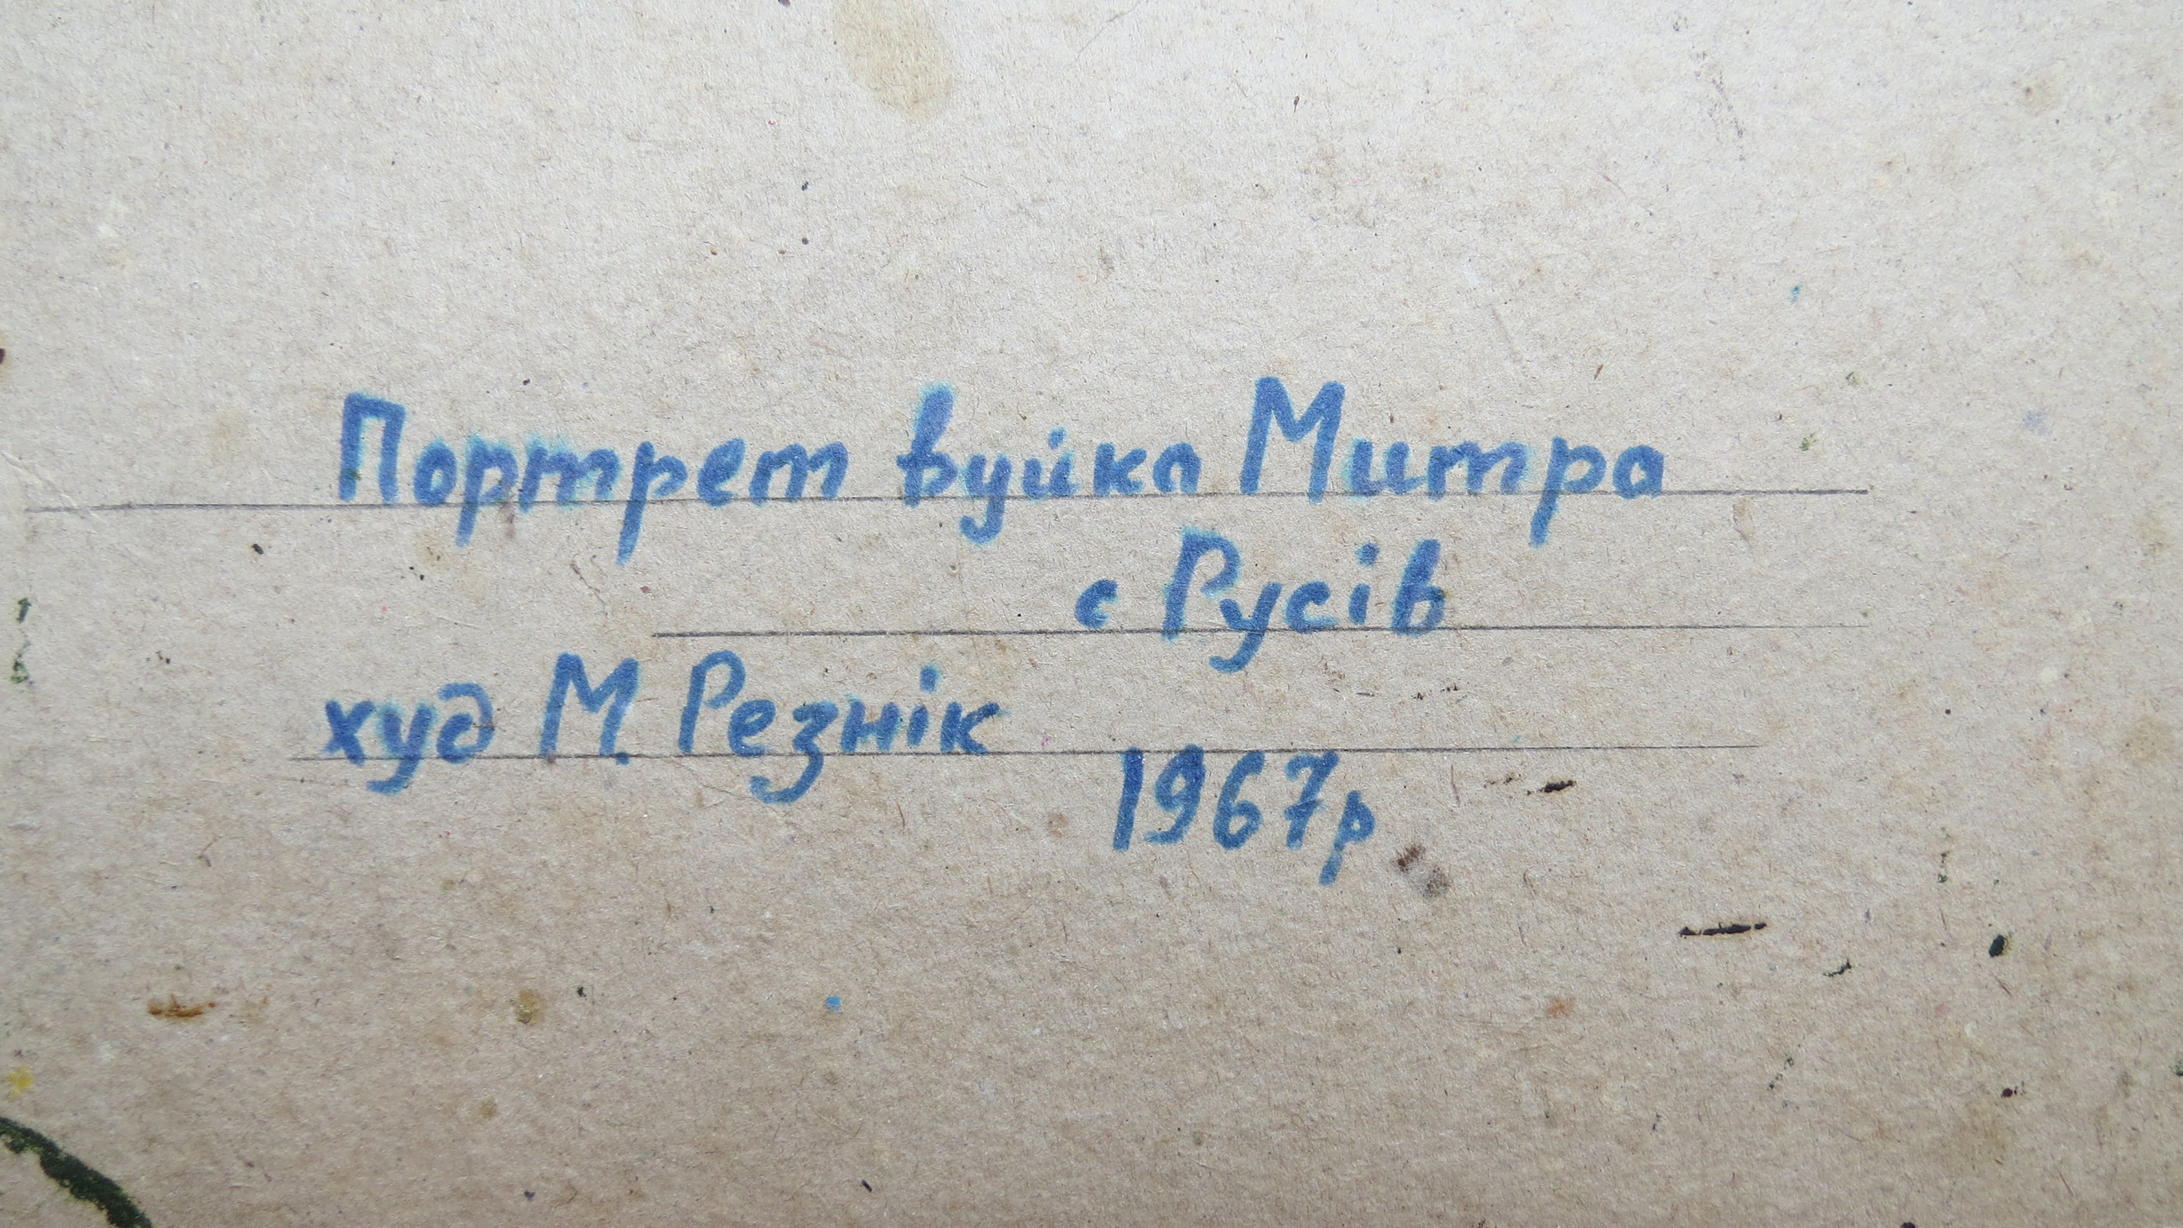 Портрет вуйка Митра
с Русів
худ М. Резнік
1967р